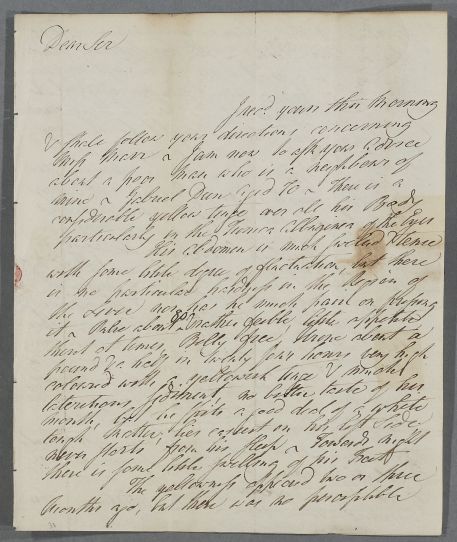 Dear Sir
I recd. yours this Morning
& shall follow your directions concerning
Miss Marr I am now to ask your advice
about a poor Man who is a neighbour of
mine Gabriel Dun aged 70 there is a
considerable yellow tinge over all his Body
particularly in the Tunica albuginea of the Eyes
His abdomen is much swelled & tense
with some little degree of fluctuation, but there
is no particular hardness in the Region of
the Liver nor has he much pain on pressing
it Pulse about 80 rather feeble, little appetite
thirst at times, Belly free, Urine about a
pound & a half in twenty four hours very high
coloured with a yellowish tinge &
lateritious sediment, no bitter taste of his
mouth, he spits a good deal of a white
tough Matter, lies easiest on his left side,
never starts from his sleep towards night
there is some little swelling of his Feet
The yellowness appeared two or three
Months ago, but there was no perceptible